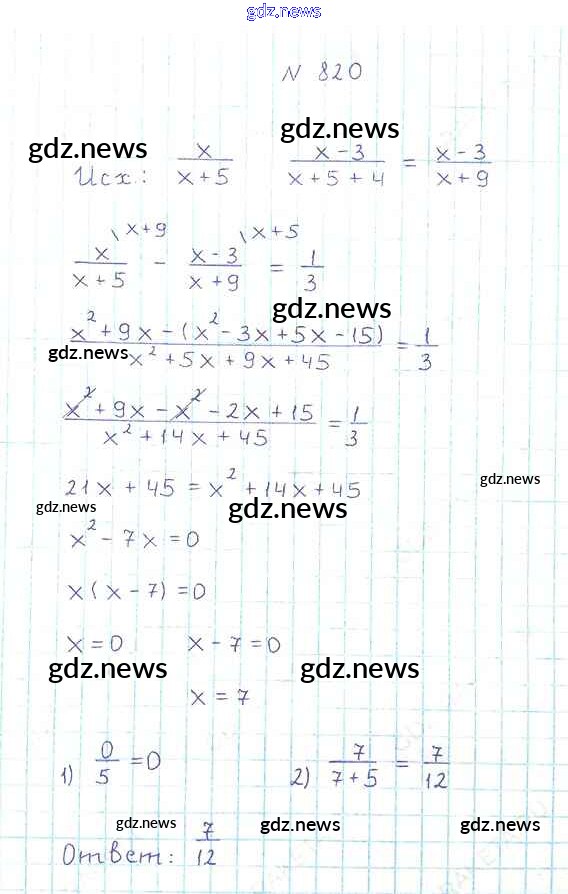 gdz.news
N 820
gdz.news gdz.news
Исх: x/(x+5) (x-3)/(x+5+4) = (x-3)/(x+9)
x/(x+5) \x+9 - (x-3)/(x+9) \x+5 = 1/3
gdz.news
(x²+9x-(x²-3x+5x-15))/(x²+5x+9x+45) = 1/3
gdz.news
(x²+9x-x²-2x+15)/(x²+14x+45) = 1/3
21x+45 = x²+14x+45
gdz.news gdz.news gdz.news
x²-7x=0
x(x-7)=0
x=0 x-7=0
gdz.news gdz.news
x=7
1) 0/5 =0 2) 7/(7+5) = 7/12
gdz.news gdz.news gdz.news
Ответ: 7/12